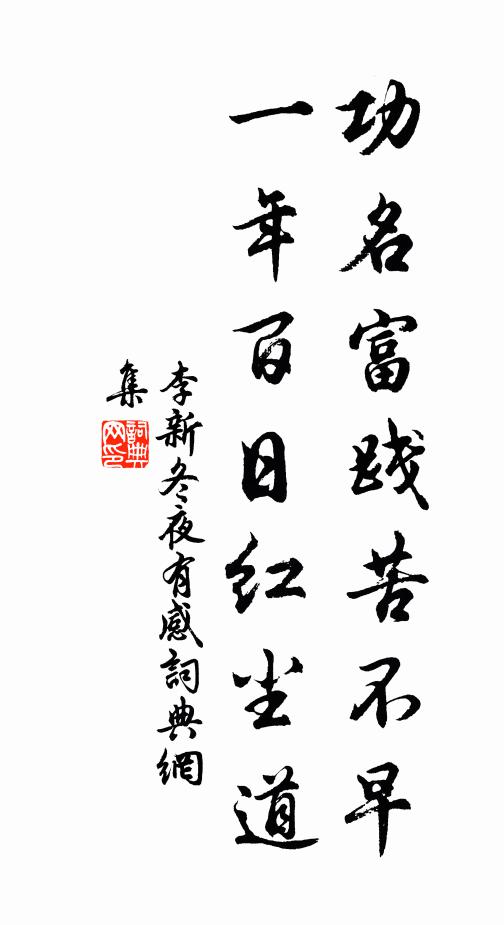 功名富踐苦不早
一年百日红尘道
李新冬夜有感詞典網
集
詞典
网印